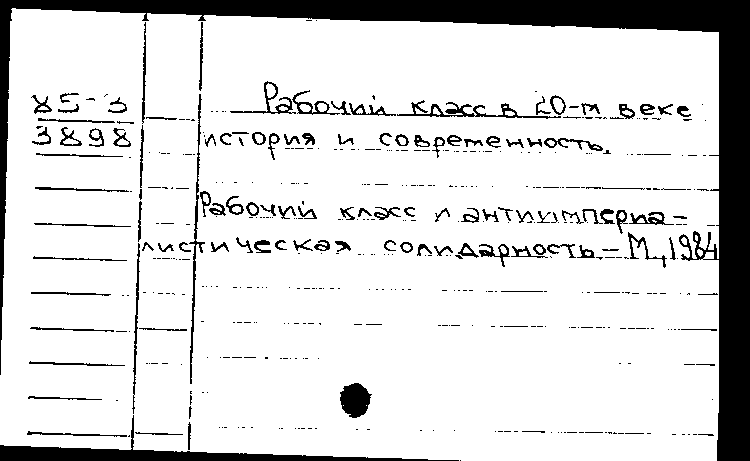 85-3
3898
Рабочий класс в 20-м веке
история и современность.
Рабочий класс и антиимпериа-
листическая солидарность - М., 1984